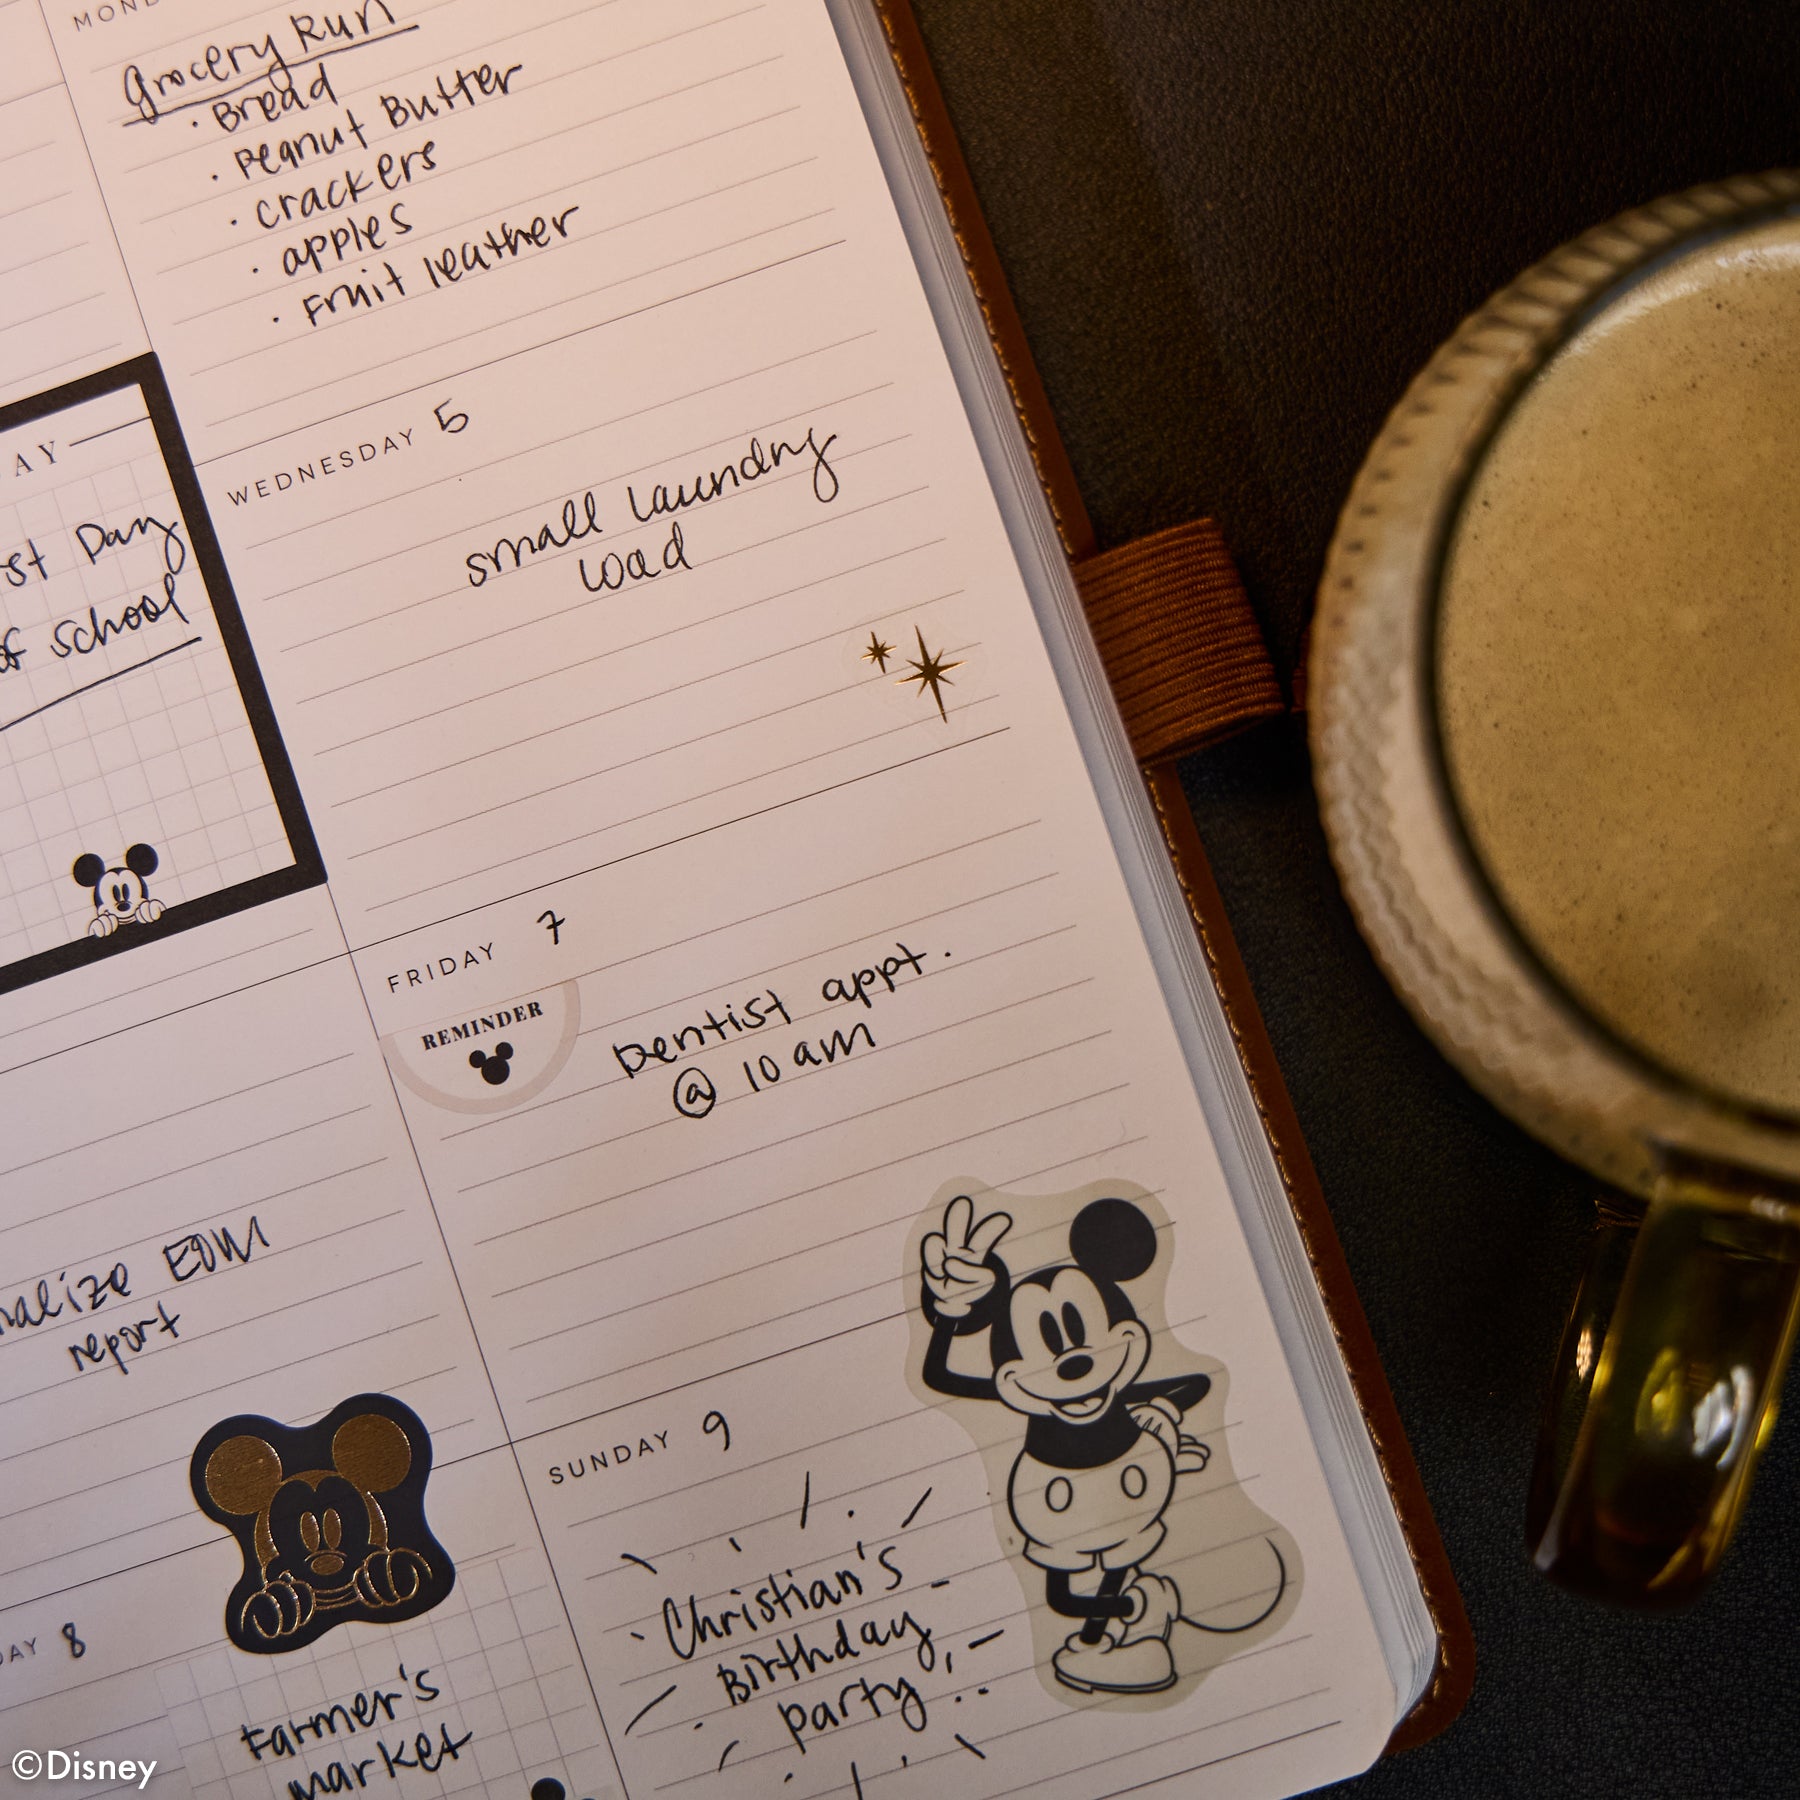 MOND
Grocery Run
· Bread
· Peanut Butter
· crackers
· apples
· Fruit leather
AY
st Day
of school
WEDNESDAY 5
small laundry
load
FRIDAY 7
REMINDER
Dentist appt.
@ 10 am
nalize EOM
report
DAY 8
Farmer's
market
SUNDAY 9
Christian's
Birthday
party
©Disney